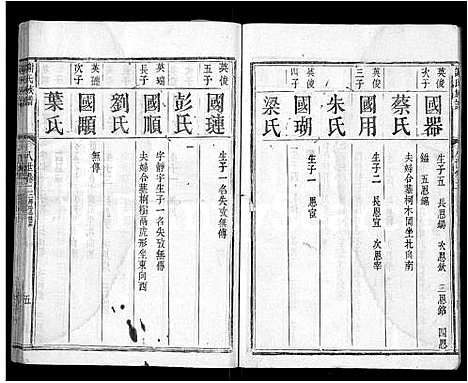 英俊
次子
國器
蔡氏
生子五 長恩錫 次恩欽 三恩錦 四恩
鎰 五恩錫
夫婦合墓柯木岡坐北向南
英俊
三子
國用
朱氏
生子二 長恩宣 次恩宰
英俊
四子
國瑚
梁氏
生子一 恩宣
英俊
五子
國璉
彭氏
生子一名失攷無傳
英瑞
長子
國順
劉氏
字靜宇生子一名失攷無傳
夫婦合墓桐樹灣虎形坐東向西
英瑞
次子
國顒
葉氏
無傳
八世
五